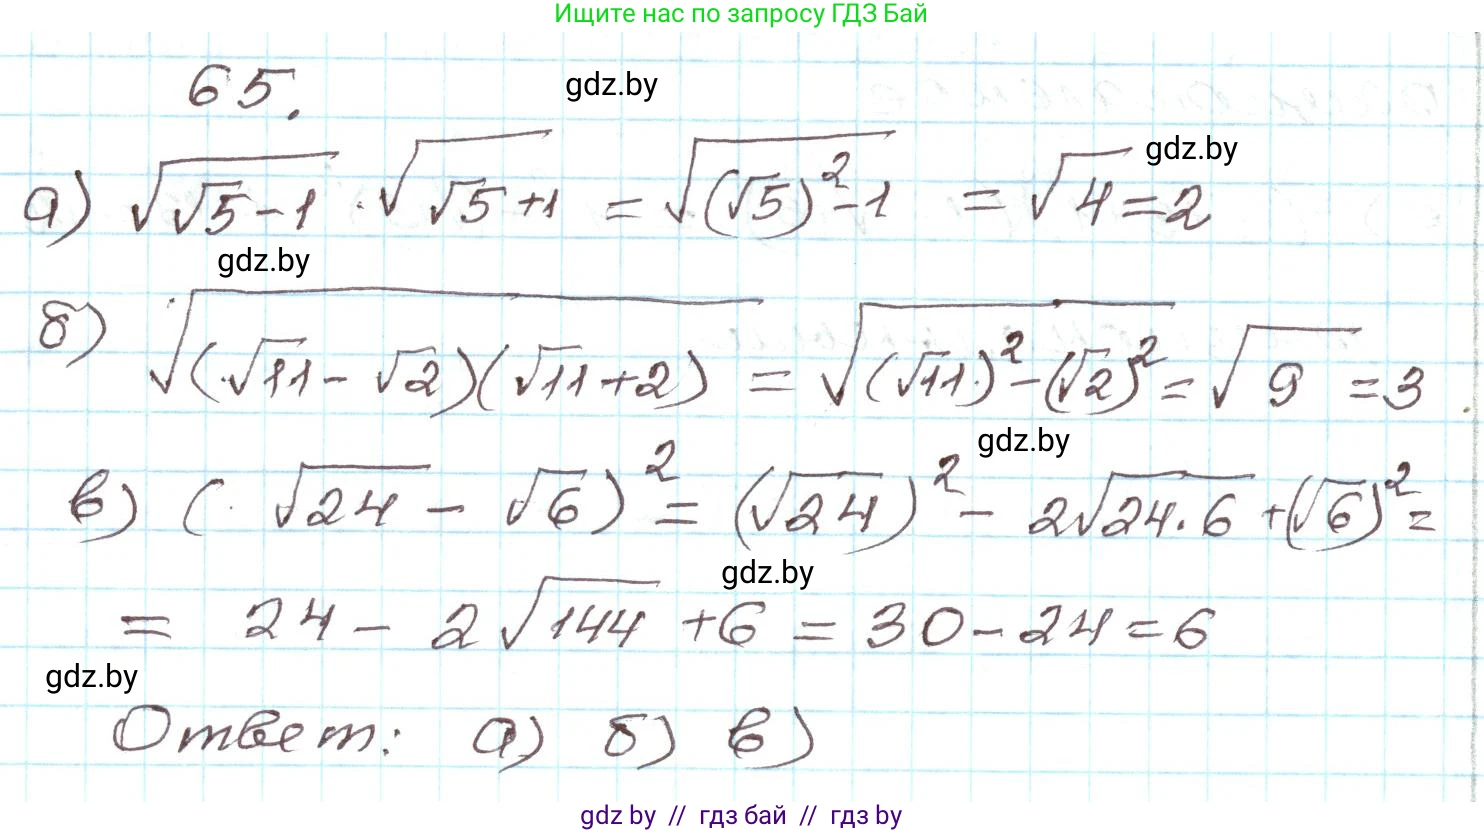 Ищите нас по запросу ГДЗ Бай
65.
gdz.by
а) √(√5-1) · √(√5+1) = √((√5)²-1) = √4 = 2
gdz.by
gdz.by
б) √((√11-√2)(√11+2)) = √((√11)²-(√2)²) = √9 = 3
gdz.by
в) (√24 - √6)² = (√24)² - 2√24·6 + (√6)² =
gdz.by
= 24 - 2√144 + 6 = 30 - 24 = 6
gdz.by
Ответ: а) б) в)
gdz.by // гдз бай // гдз by